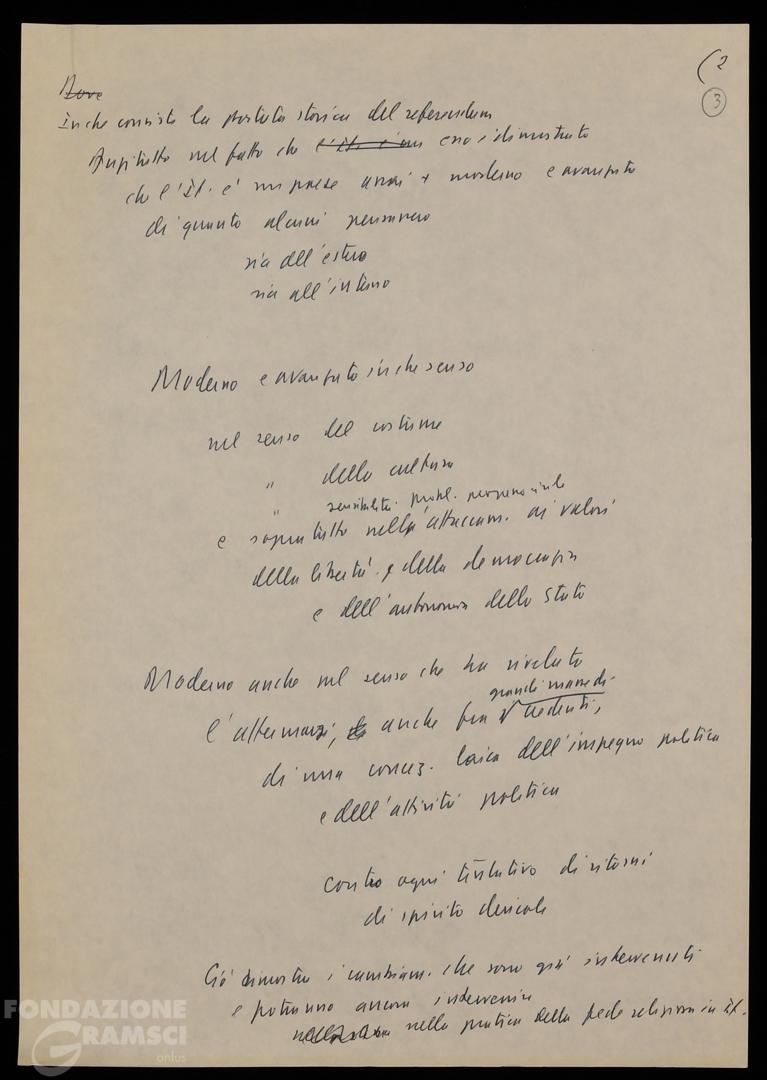 (2
3
Dove
In che consiste la portata storica del referendum
Anzitutto nel fatto che l'It. è un esso à dimostrato
che l'It. è un paese assai + moderno e avanzato
di quanto alcuni pensavano
sia all'estero
sia all'interno
Moderno e avanzato in che senso
nel senso del costume
" della cultura
" sensibilità probl.
e sopratutto nell'attaccam. ai valori
della libertà e della democrazia
e dell'autonomia dello Stato
Moderno anche nel senso che ha rivelato
grandi masse di
l'affermarsi, anche fra credenti,
di una concez. laica dell'impegno politico
e dell'attività politica
contro ogni tentativo di ritorni
di spirito clericale
Ciò dimostra i cambiam. che sono già intervenuti
e potranno ancora intervenire
nella pratica della fede religiosa in It.
FONDAZIONE
GRAMSCI
onlus